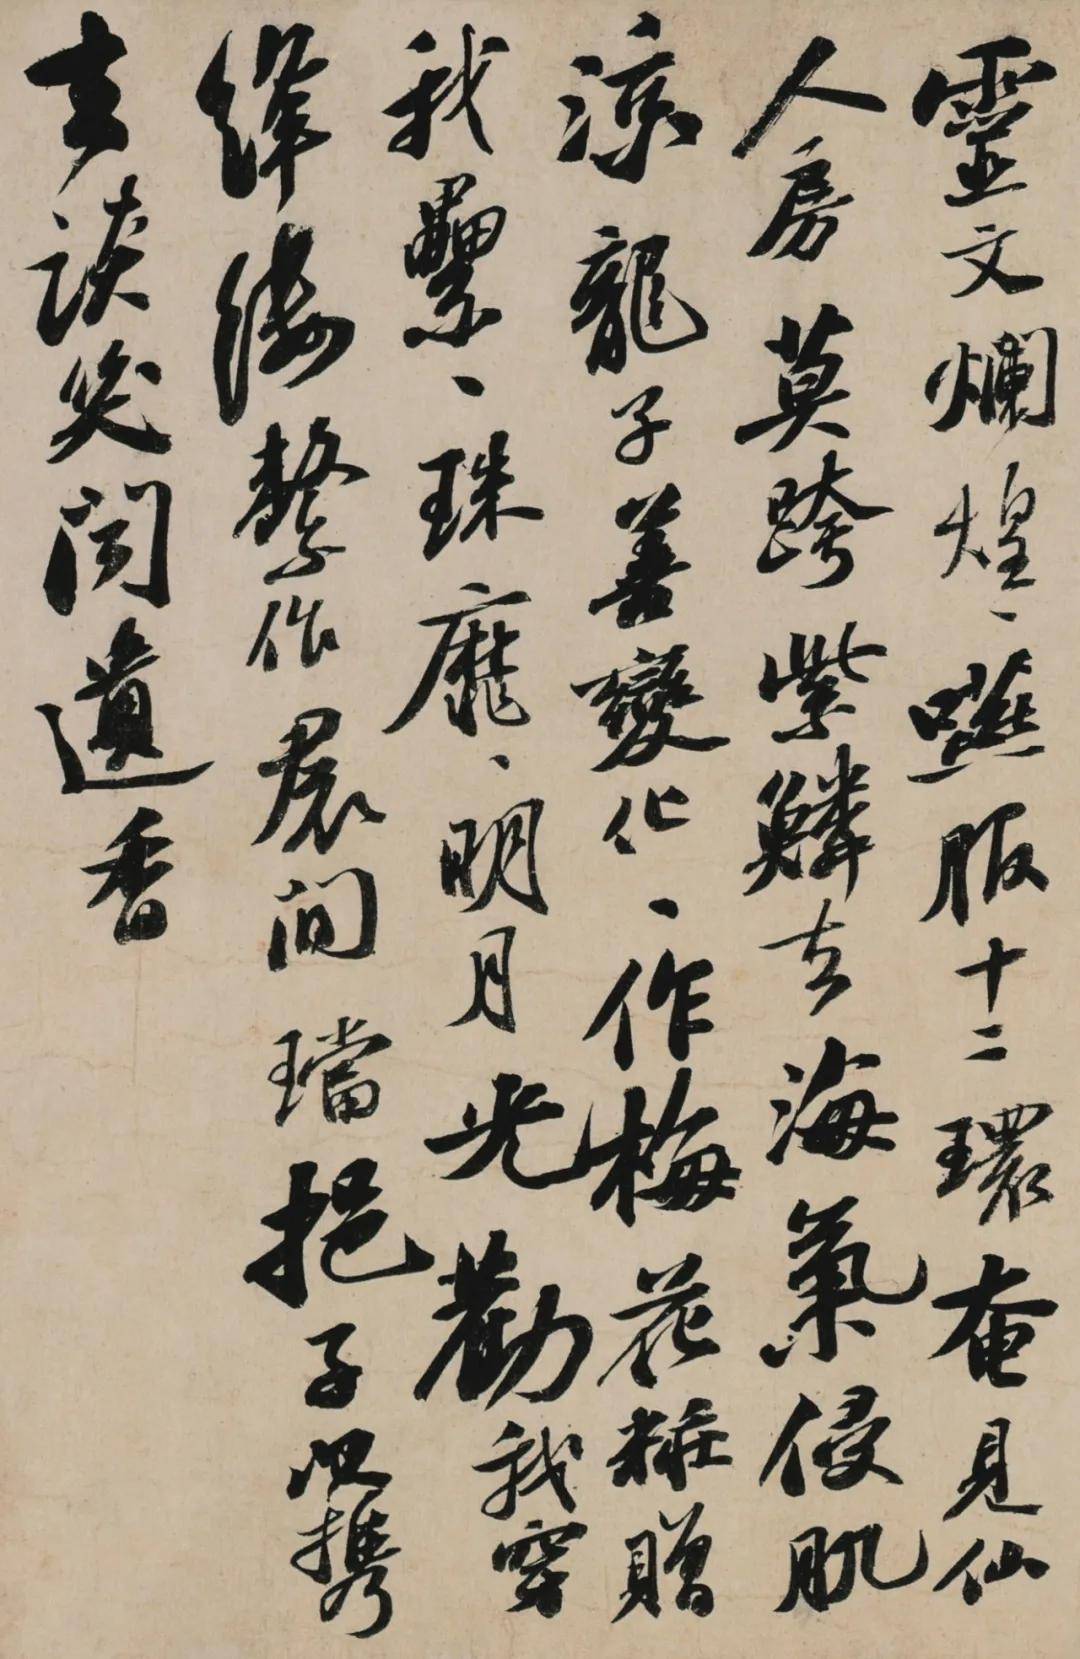 靈文爛煌〻嚥服十二環奄見仙
人房莫跨紫鱗去海氣侵肌
涼龍子善變化〻作梅花粧贈
我纍〻珠靡〻明月光勸我穿
絳縷繫作裠間璫挹子以携
去談笑聞遺香